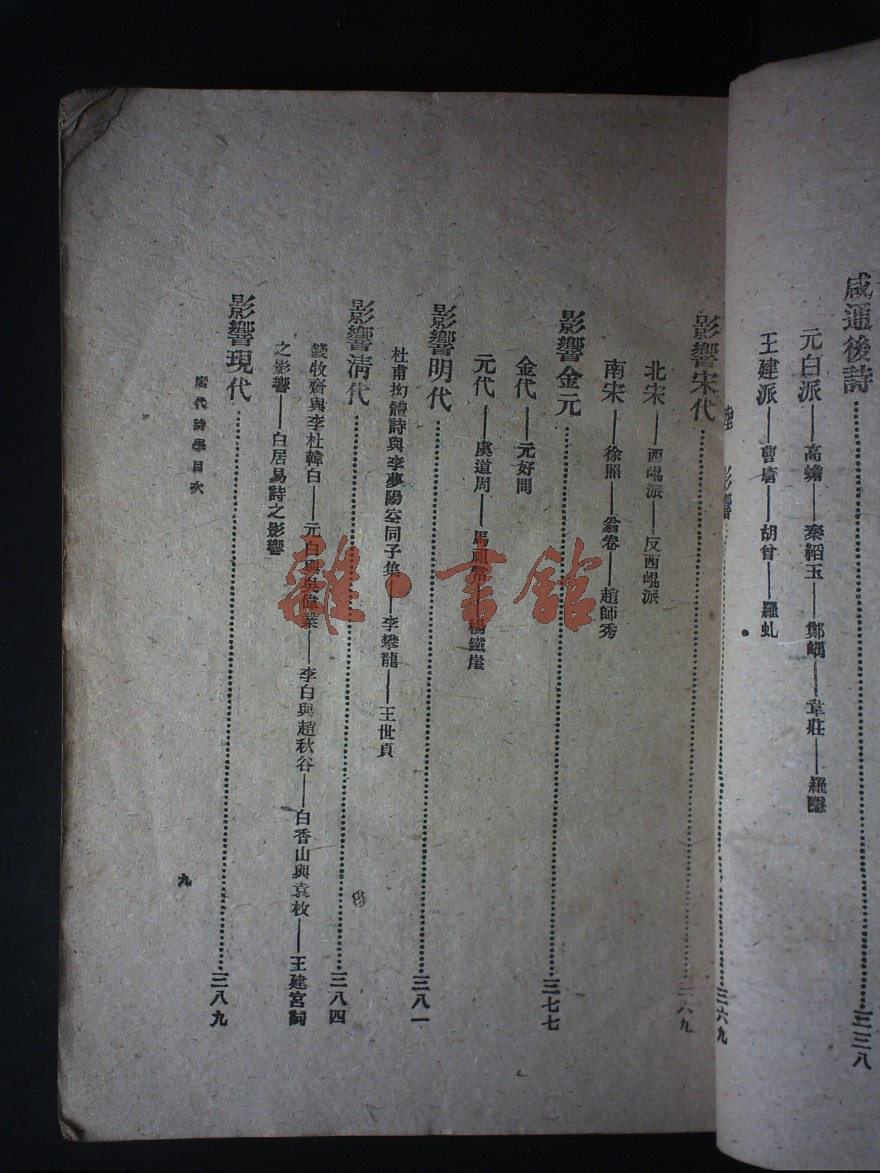 咸通後詩………三三八
元白派——高蟾——秦韜玉——鄭嵎——韋莊——羅隱
王建派——曹唐——胡曾——羅虬
影響………三六九
影響宋代………三六九
北宋——西崐派——反西崐派
南宋——徐照——翁卷——趙師秀
影響金元………三七七
金代——元好問
元代——虞道周——馬祖常——楊鐵崖
影響明代………三八一
杜甫拗體詩與李夢陽空同子集——李攀龍——王世貞
影響清代………三八四
錢牧齋與李杜韓白——元白與吳偉業——李白與趙秋谷——白香山與袁枚——王建宮詞
之影響——白居易詩之影響
影響現代………三八九
唐代詩學目次
九
雜·書館